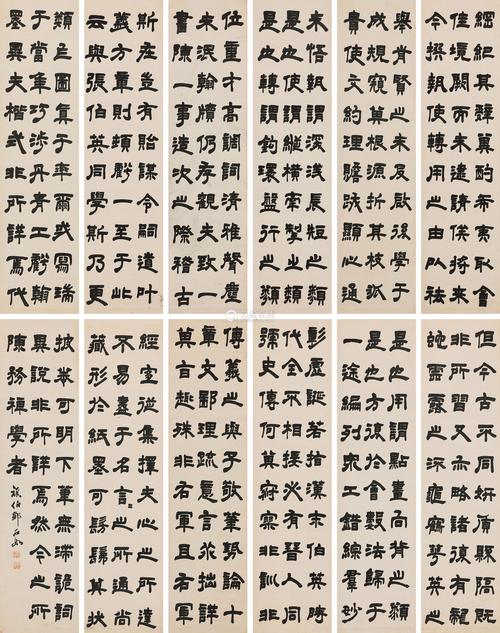 綱紀其冀酌希夷取會
佳境闕而未逮請俟將來
今撰執使轉用之由以祛
舉前賢之未及啟後學于
成規窺其根源析其枝派
貴使文約理贍跡顯心通
未悟執謂深淺長短之類
是也使謂縱橫牽掣之類
是也轉謂鉤環盤紆之類
位重才高調詞清雅聲塵
未泯翰牘仍存觀夫致一
書陳一事造次之際稽古
斯在豈有貽謀令嗣道叶
義方章則頓虧一至于此
云與張伯英同學斯乃更
類乍圖真于率爾或寫瑞
于當年巧涉丹青工虧翰
墨異夫楷式非所詳焉代
但今古不同妍質懸隔既
非所習又亦略諸復有龍
蛇雲露之流龜鶴華英之
是也用謂點畫向背之類
是也方復會其數法歸于
一途編列眾工錯綜羣妙
彰虛誕若指漢末伯英時
代全不相接必有晉人同
號史傳何其寂寥非訓非
傳羲之與子敬筆勢論十
章文鄙理疏意乖言拙詳
其旨趣殊非右軍且右軍
經宜從棄擇夫心之所達
不易盡于名言言之所通尚
難形於紙墨粗可髣髴其狀
披卷可明下筆無滯詭詞
異說非所詳焉然今之所
陳務裨學者